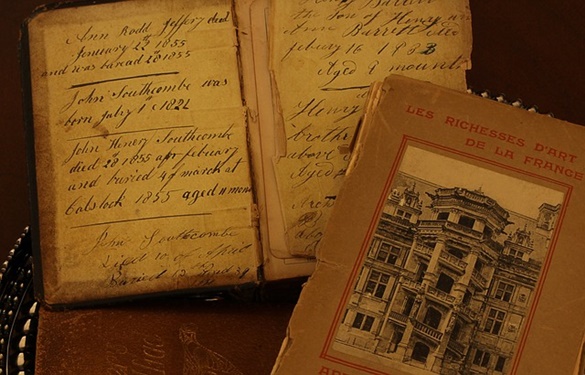 Ann Rodd Jeffery died
January 22 1855
and was buread 28 1855
John Southcombe was
born July 1st 1821
John Henry Southcombe
died 28 1855 feberary
and buried 4 of march at
Calstock 1855 aged 11 mon
John Southcombe
Died 10 of April
Buried 13
Henry
the son of Henry an
Ann Barrett
febury 16 1883
Aged 9 mounts
Henry
brothe
above
Aged
LES RICHESSES D'ART
DE LA FRANCE